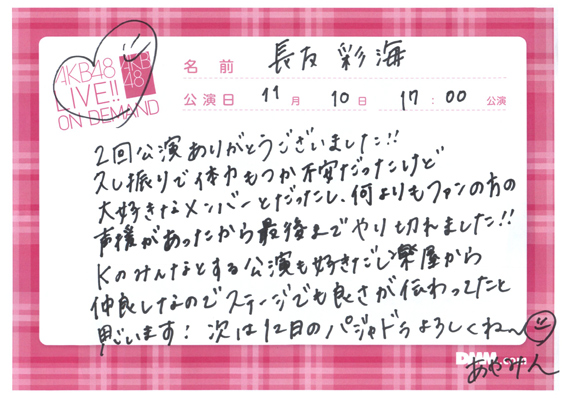 AKB48
LIVE!!
ON DEMAND
AKB
48
名前 長友 彩海
公演日 11月 10日 17:00 公演
2回公演ありがとうございました!!
久し振りで体力もつか不安だったけど
大好きなメンバーとだったし、何よりもファンの方の
声援があったから最後までやり切れました!!
Kのみんなとする公演も好きだし楽屋から
仲良しなのでステージでも良さが伝わってたと
思います! 次は12日のパジャドラよろしくね〜
DMM.com
あやみん